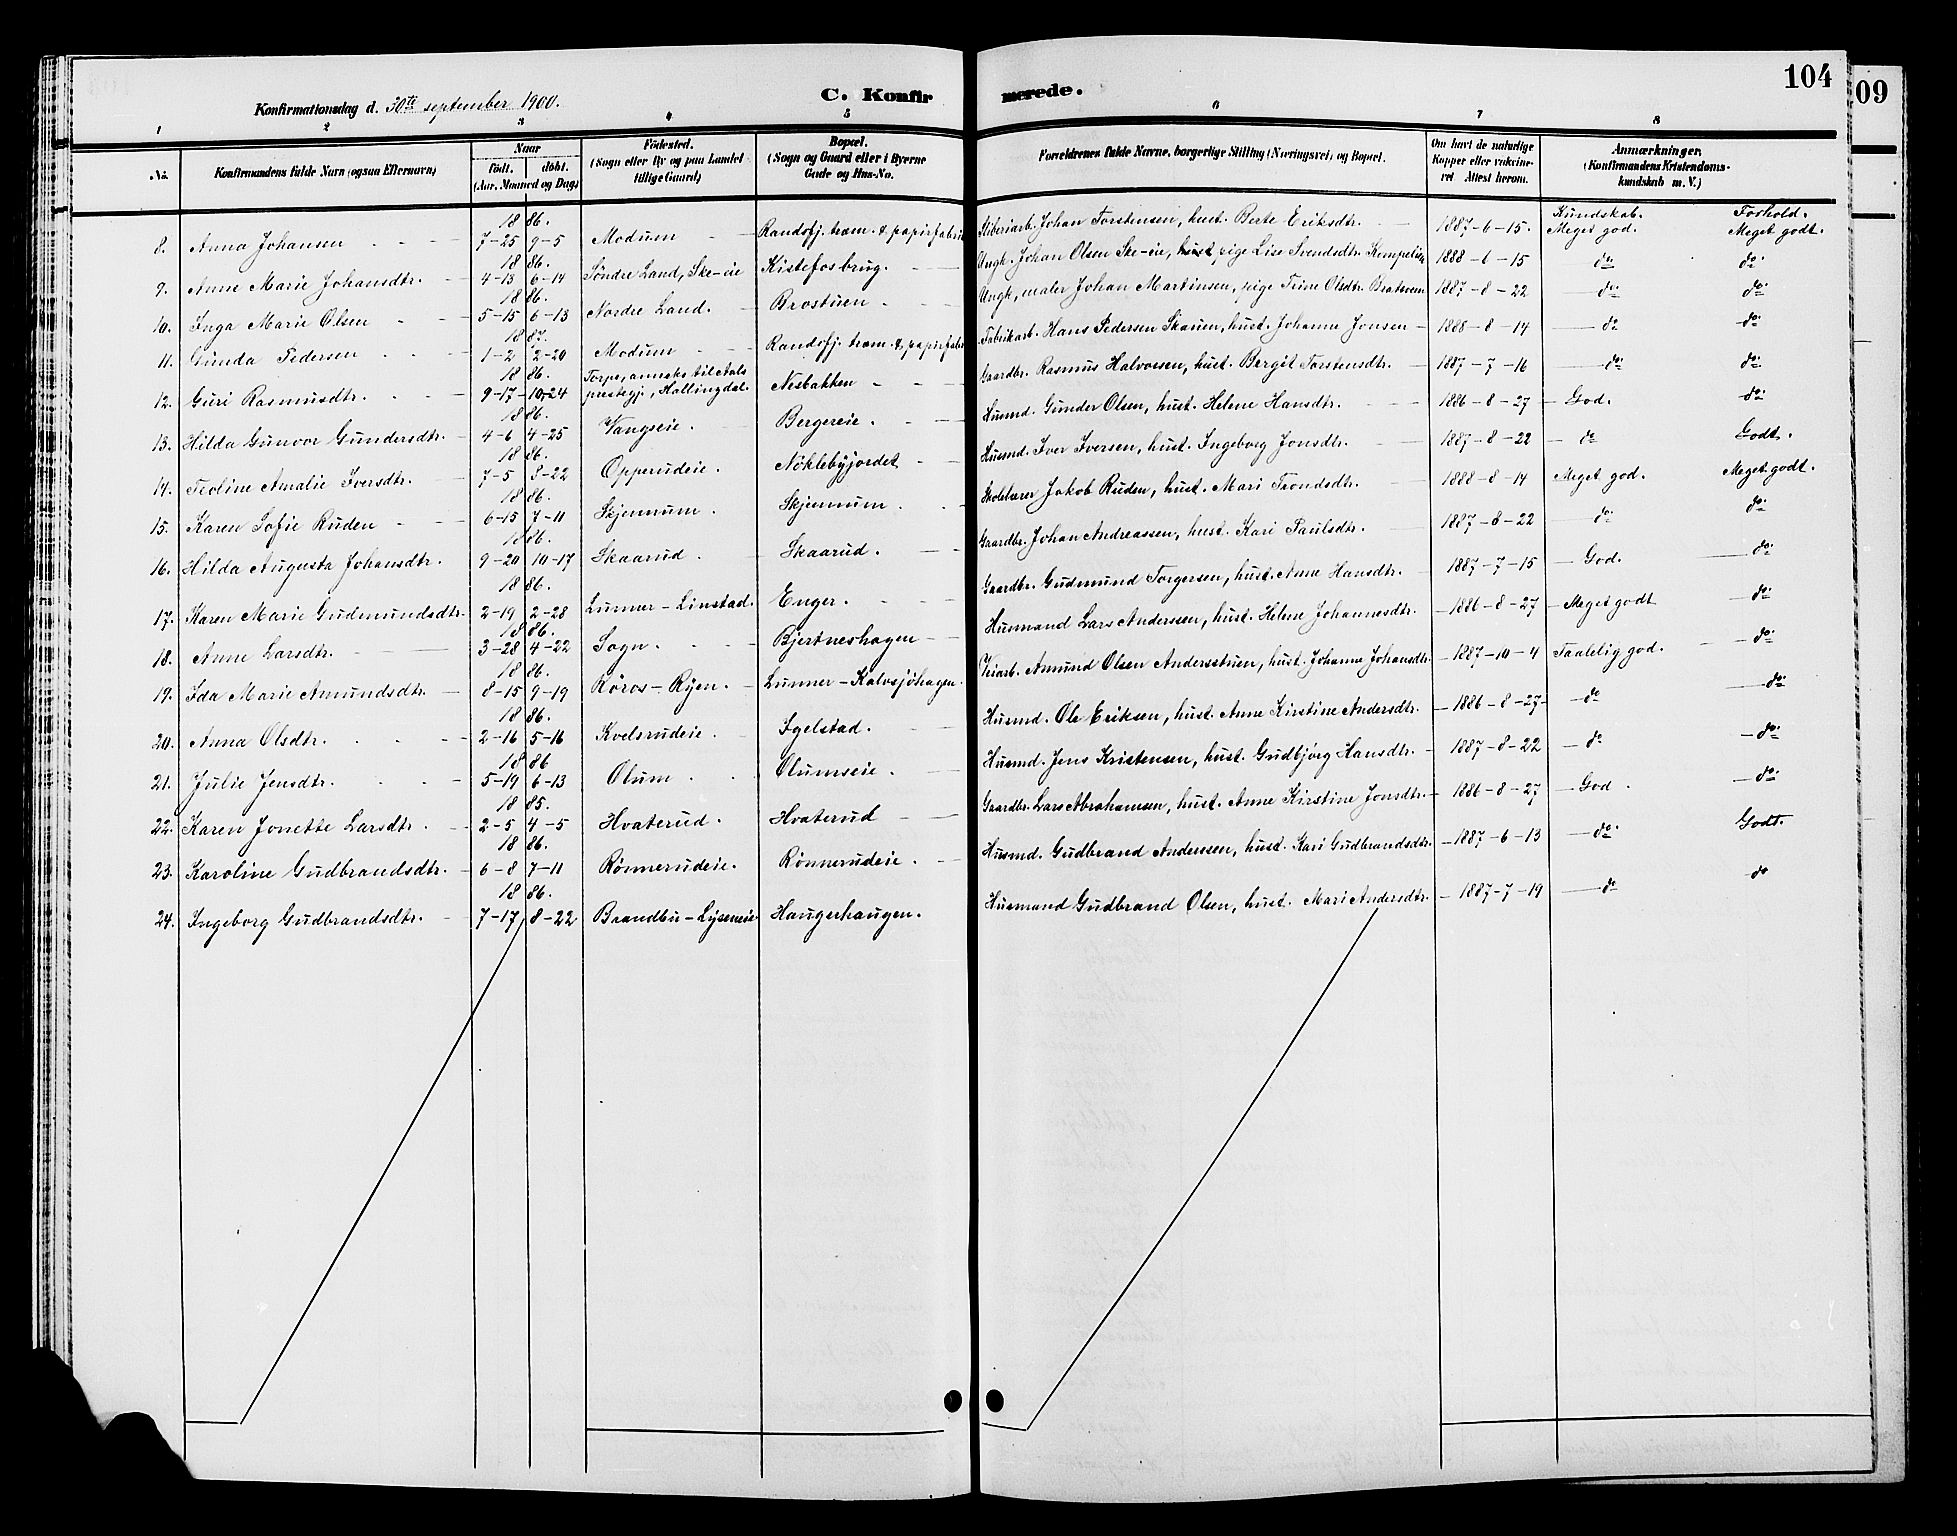 104
09
Konfirmationsdag d. 30te september 1900. C. Konfirmerede.
1 2 3 4 5 6 7 8
No. Konfirmandens fulde Navn (ogsaa Efternavn) Naar født. døbt. (Aar, Maaned og Dag) Fødested. (Sogn eller By og paa Landet tillige Gaard) Bopæl. (Sogn og Gaard eller i Byerne Gade og Hus-No. Forældrenes fulde Navne, borgerlige Stilling (Næringsvei) og Bopæl. Om havt de naturlige Kopper eller vakcineret Attest herom. Anmærkninger, (Konfirmandens Kristendomskundskab m. V.)
Kundskab. Forhold.
1886.
8. Anna Johansen 7-25 9-5 Modum Randsfj. træm. & papirfabrik Sliberiarb. Johan Torstensen, hust. Berte Eriksdtr. 1887-6-15. Meget god. Meget godt.
1886.
9. Anne Marie Johansdtr. 4-13 6-14 Søndre Land, Ske-eie Kistefosbrug. Ungk. Johan Olsen Ske-eie, pige Lise Svendsdtr. 1888-6-15 do do
1886.
10. Inga Marie Olsen 5-15 6-13 Nordre Land. Brostuen Ungk, maler Johan Martinsen, pige Trine Olsdtr. 1887-8-22 do do
1887.
11. Gunda Pedersen 1-2 2-20 Modum Randsfj. træm. & papirfabr Fabrikarb. Hans Pedersen Skauen, hust. Johanne Jonsen 1888-8-14 do do
1886.
12. Guri Rasmusdtr. 9-17 10-24 Torpe, anneks til Aals prestegj., Hallingdal. Nesbakken Gaardbr. Rasmus Halvorsen, hust. Bergit Torstensdtr. 1887-7-16 do do
1886.
13. Hilda Gunvor Gundersdtr. 4-6 4-25 Vangseie. Bergereie. Husmd. Gunder Olsen, hust. Helene Hansdtr. 1886-8-27 God. do
1886.
14. Teoline Amalie Iversdtr. 7-5 8-22 Opperudeie. Nøklebyjordet Husmd. Iver Iversen, hust. Ingeborg Jonsdtr. 1887-8-22 do Godt.
1886.
15. Karen Sofie Ruden 6-15 7-11 Skjennum. Skjennum. Skolelærer Jakob Ruden, hust. Mari Trondsdtr. 1888-8-14 Meget god. Meget godt.
1886.
16. Hilda Augusta Johansdtr. 9-20 10-17 Skaarud Skaarud. Gaardbr. Johan Andreassen, hust. Kari Paulsdtr. 1887-8-22 do do
1886.
17. Karen Marie Gudmundsdtr. 2-19 2-28 Lunner-Linstad. Enger. Gaardbr. Gudmund Torgersen, hust. Anne Hansdtr. 1887-7-15 God. do
1886.
18. Anne Larsdtr. 3-28 4-22 Sogn. Bjertneshagen Husmand Lars Andersen, hust. Helene Johannesdtr. 1886-8-27 Meget godt do
1886.
19. Ida Marie Amundsdtr. 8-15 9-19 Røros-Ryen. Lunner-Kalvsjøhagen. Veiarb. Amund Olsen Andersstuen, hust. Johanne Johansdtr. 1887-10-4 Taalelig god. do
1886.
20. Anna Olsdtr. 2-16 5-16 Kvelsrudeie Igelstad. Husmd. Ole Eriksen, hust. Anne Kirstine Andersdtr. 1886-8-27 do do
1886
21. Julie Jensdtr. 5-19 6-13 Olum Olumseie. Husmd. Jens Kristensen, hust. Gudbjørg Hansdtr. 1887-8-22 do do
1885.
22. Karen Jonette Larsdtr. 2-5 4-5 Hvaterud. Hvaterud Gaardbr. Lars Abrahamsen, hust. Anne Kirstine Jonsdtr. 1886-8-27 God. do
1886.
23. Karoline Gudbrandsdtr. 6-8 7-11 Rønnerudeie. Rønnerudeie. Husmd. Gudbrand Andersen, hust. Kari Gudbrandsdtr. 1887-6-13 do Godt.
1886.
24. Ingeborg Gudbrandsdtr. 7-17 8-22 Brandbu-Lyseneie Haugerhaugen. Husmand Gudbrand Olsen, hust. Mari Andersdtr. 1887-7-19 do do